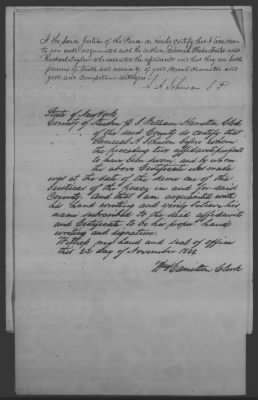 I the said Justice of the Peace do hereby certify that I
am well acquainted with the within named
and who executed the affidavit and that they are both
persons of truth and veracity of good moral character and
good and competent witnesses
S. A. Johnson J. P.
State of New York
County of Steuben SS I William Hamilton Clerk
of the said County do certify that
Samuel A Johnson before whom
the preceding two affidavits
to have been sworn and by whom
the above Certificate was made
was at the date of the same one of the
Justices of the peace in and for said
County, And that I am acquainted with
his hand writing and verily believe his
name subscribed to the said affidavits
and Certificate to be his proper hand
writing and signature
Witness my hand and seal of office
this 22 day of November 1844
Wm Hamilton Clerk